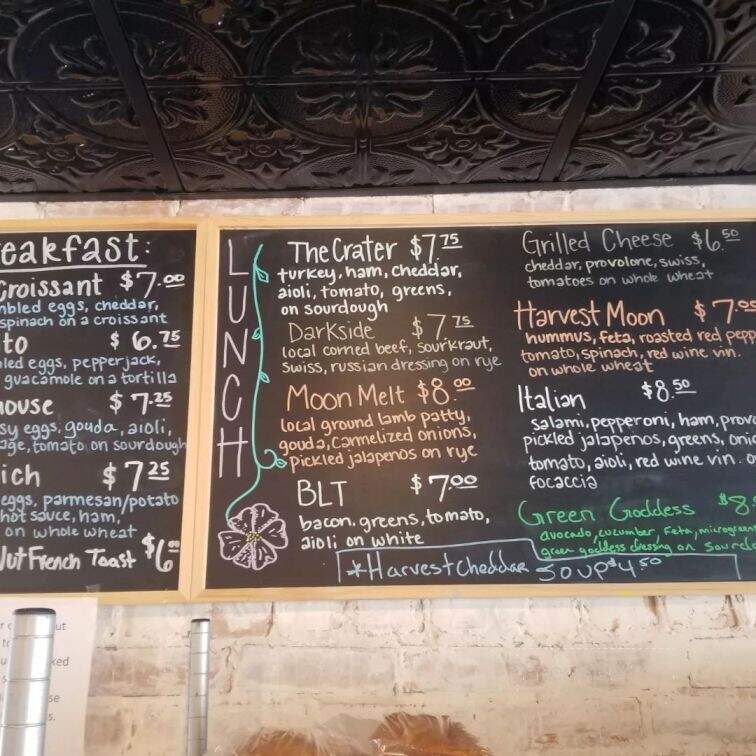 eakfast:
Croissant $7.00
mbled eggs, cheddar,
spinach on a croissant
to $6.75
led eggs, pepperjack,
guacamole on a tortilla
house $7.25
sy eggs, gouda, aioli,
age, tomato on sourdough
ich $7.25
eggs, parmesan/potato
hot sauce, ham,
on whole wheat
Nut French Toast $6
LUNCH
The Crater $7.75
turkey, ham, cheddar,
aioli, tomato, greens,
on sourdough
Darkside $7.75
local corned beef, sourkraut,
swiss, russian dressing on rye
Moon Melt $8.00
local ground lamb patty,
gouda, carmelized onions,
pickled jalapenos on rye
BLT $7.00
bacon, greens, tomato,
aioli on white
Grilled Cheese $6.50
cheddar, provolone, swiss,
tomatoes on whole wheat
Harvest Moon $7.95
hummus, feta, roasted red pepp
tomato, spinach, red wine vin.
on whole wheat
Italian $8.50
salami, pepperoni, ham, provo
pickled jalapenos, greens, oni
tomato, aioli, red wine vin. o
focaccia
Green Goddess $8
avocado, cucumber, feta, microgreens
green goddess dressing on sourdo
*Harvest Cheddar Soup $4.50